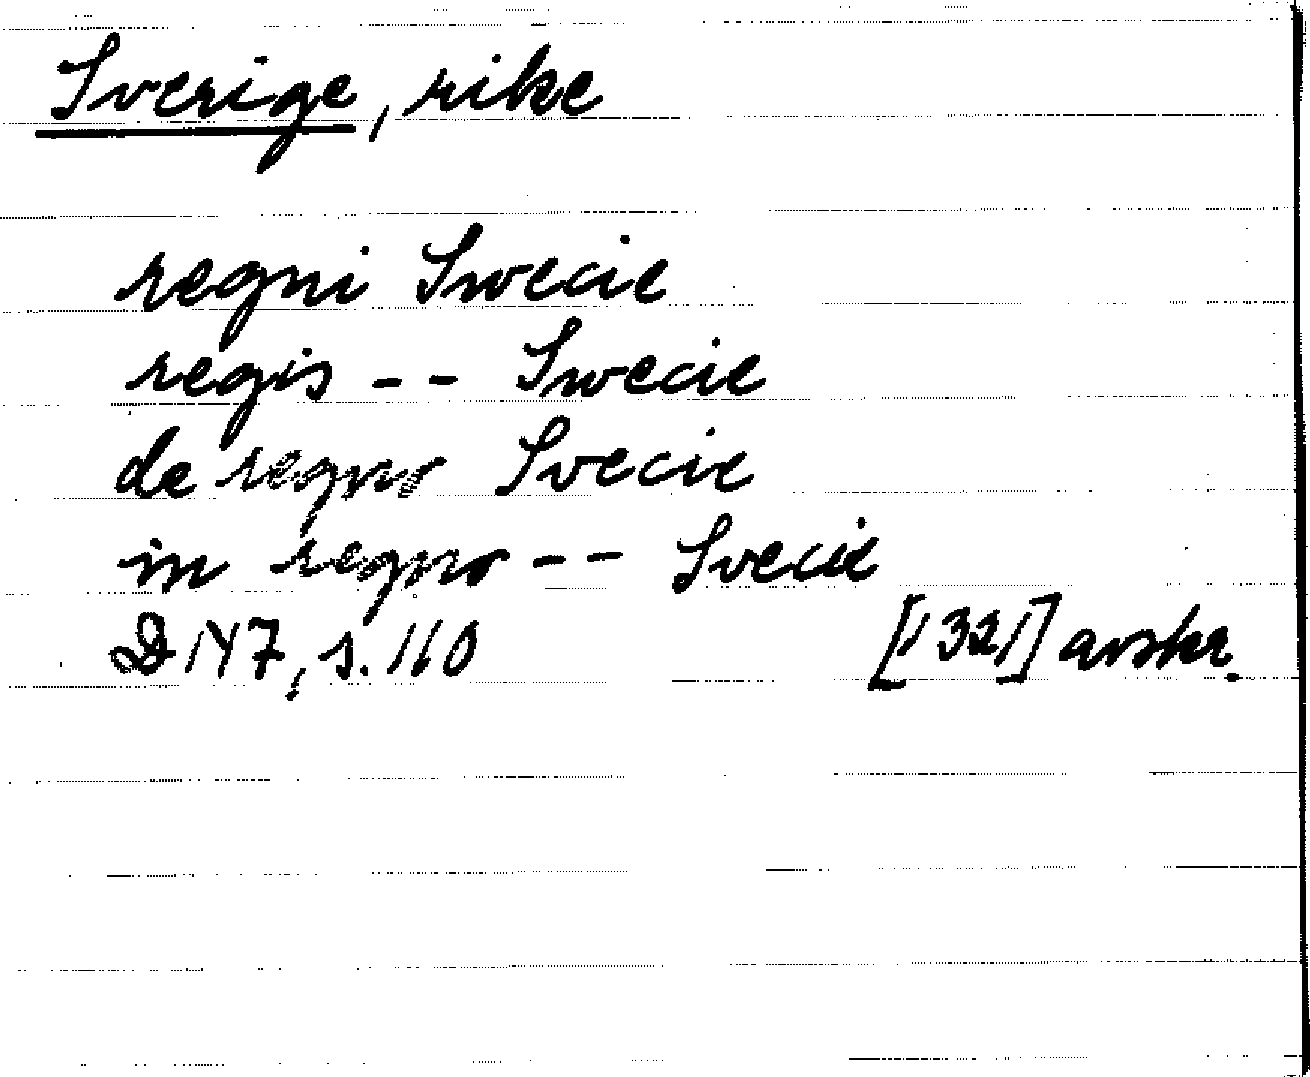 Sverige, rike
regni Swecie
regis -- Swecie
de regno Svecie
in regno -- Svecie
D 147, s. 110 [1321] avskr.